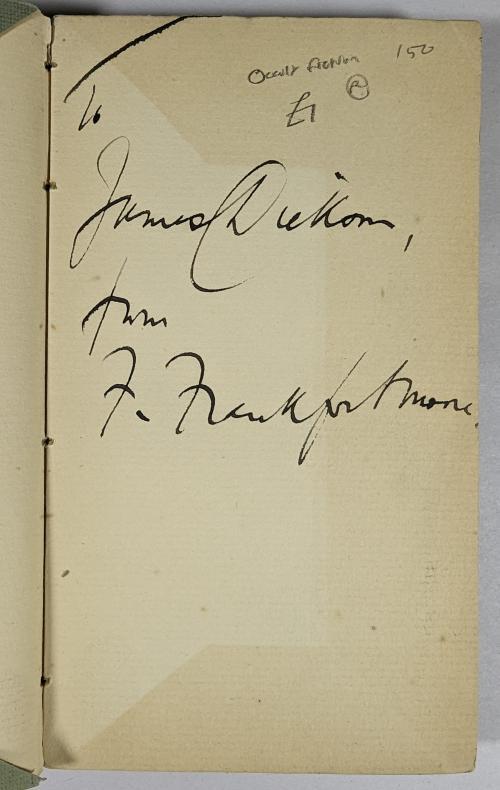 Occult fiction 150
£1 R
To
James Dickson,
from
F. Frankfort Moore.